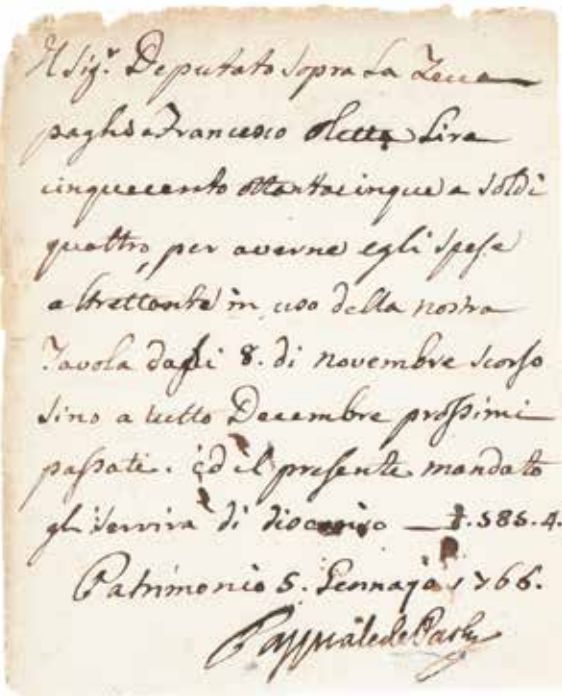 Il Sig.r Deputato sopra La Zecca
paghi a Francesco Lire
cinquecento ottantacinque a soldi
quattro, per averne egli spese
altrettante in uso della nostra
Tavola dagli 8. di novembre scorso
sino a tutto Decembre prossimi
passati. ed il presente mandato
gli servirà di — £.585.4.
Patrimonio 5. Gennajo 1766.
Pasquale de Paoli